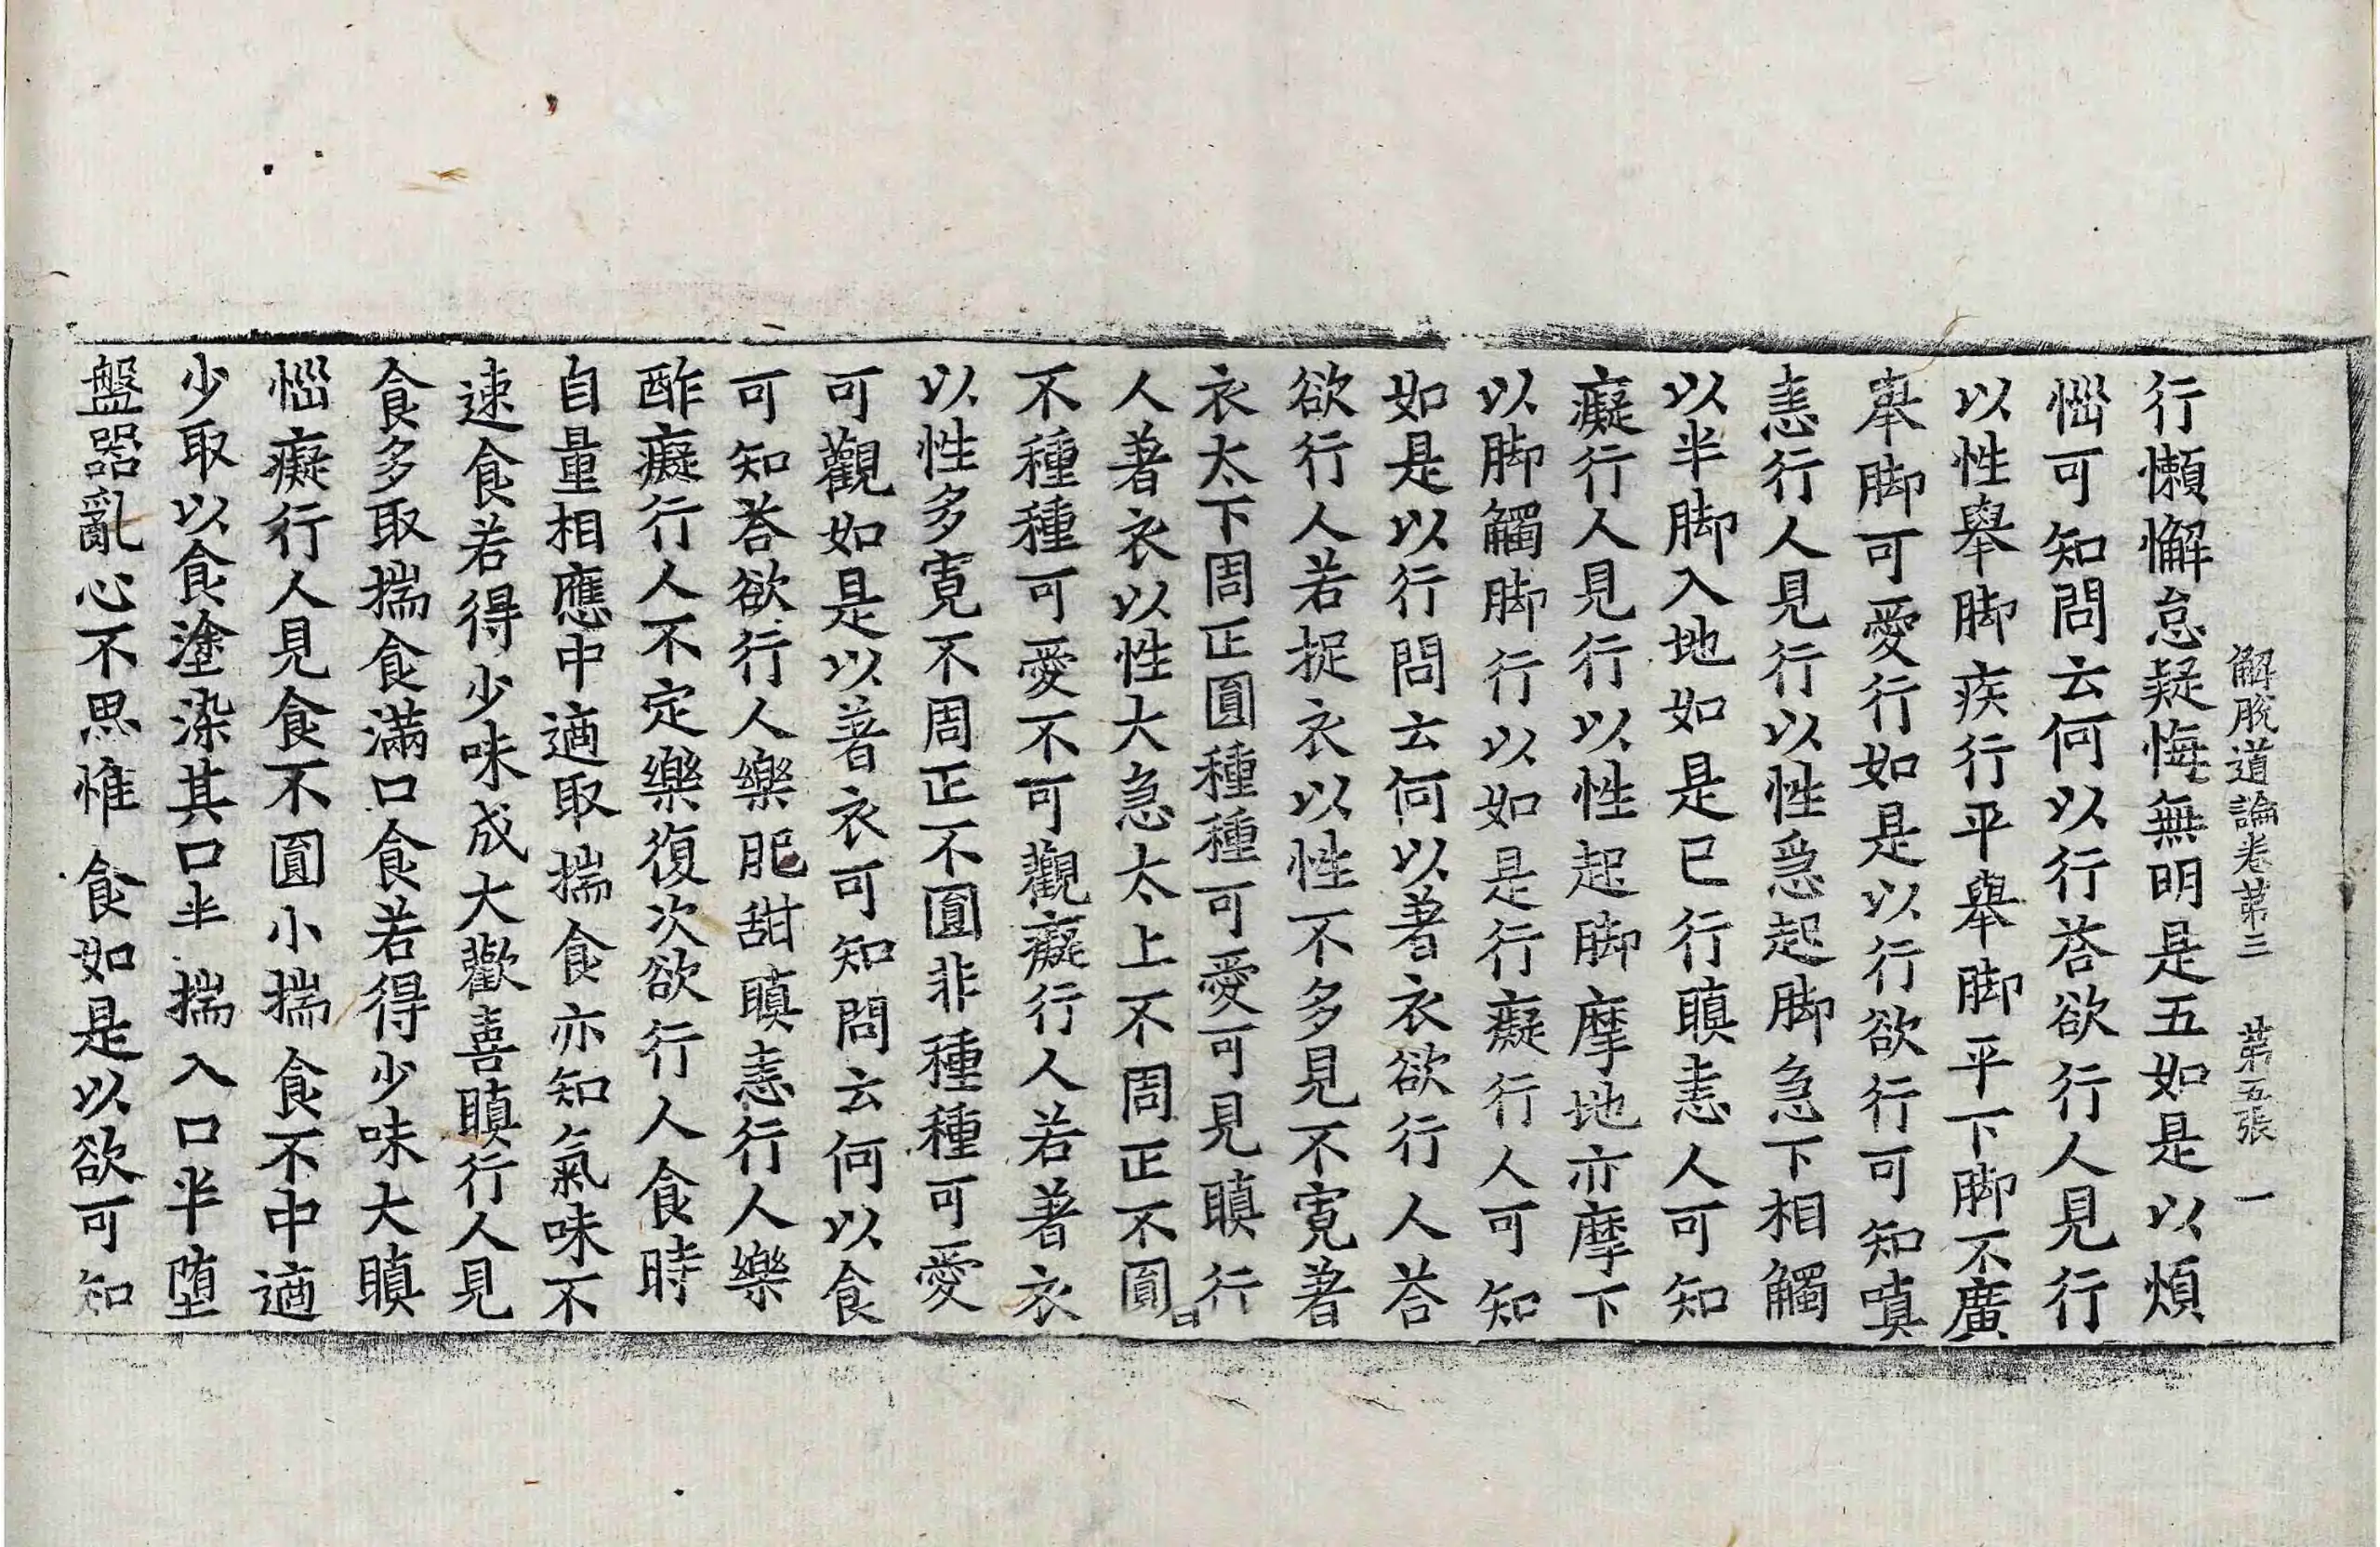 解脫道論卷第三　第五張　一
行懶懈怠疑悔無明是五如是以煩
惱可知問云何以行荅欲行人見行
以性舉脚疾行平舉脚平下脚不廣
舉脚可愛行如是以行欲行可知嗔
恚行人見行以性急起脚急下相觸
以半脚入地如是已行瞋恚人可知
癡行人見行以性起脚摩地亦摩下
以脚觸脚行以如是行癡行人可知
如是以行問云何以著衣欲行人荅
欲行人若捉衣以性不多見不寬著
衣太下周正圓種種可愛可見瞋行
人著衣以性大急太上不周正不圓
不種種可愛不可觀癡行人若著衣
以性多寬不周正不圓非種種可愛
可觀如是以著衣可知問云何以食
可知荅欲行人樂肥甜瞋恚行人樂
酢癡行人不定樂復次欲行人食時
自量相應中適取揣食亦知氣味不
速食若得少味成大歡喜瞋行人見
食多取揣食滿口食若得少味大瞋
惱癡行人見食不圓小揣食不中適
少取以食塗染其口半揣入口半墮
盤器亂心不思惟食如是以欲可知
日